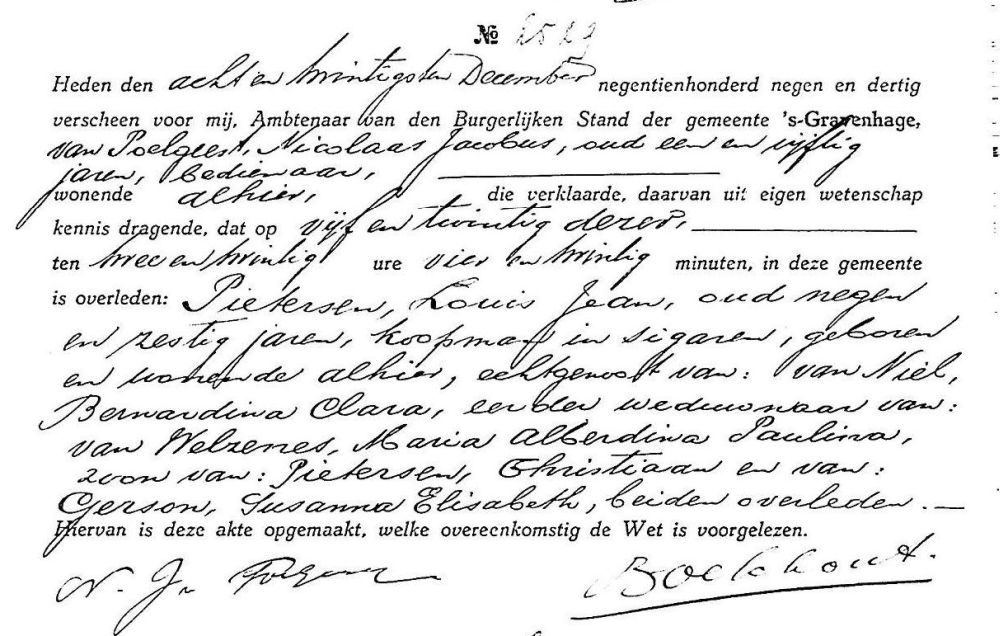 № 2529
Heden den acht en twintigsten December negentienhonderd negen en dertig
verscheen voor mij, Ambtenaar van den Burgerlijken Stand der gemeente 's-Gravenhage,
van Poelgeest, Nicolaas Jacobus, oud een en vijftig
jaren, bedienaar,
wonende alhier, die verklaarde, daarvan uit eigen wetenschap
kennis dragende, dat op vijf en twintig dezer,
ten twee en twintig ure vier en twintig minuten, in deze gemeente
is overleden: Pietersen, Louis Jean, oud negen
en zestig jaren, koopman in sigaren, geboren
en wonende alhier, echtgenoot van: van Niel,
Bernardina Clara, eerder weduwnaar van:
van Welzenes, Maria Alberdina Paulina,
zoon van: Pietersen, Christiaan en van:
Gerson, Susanna Elisabeth, beiden overleden.
Hiervan is deze akte opgemaakt, welke overeenkomstig de Wet is voorgelezen.
N. J. Boekhout.